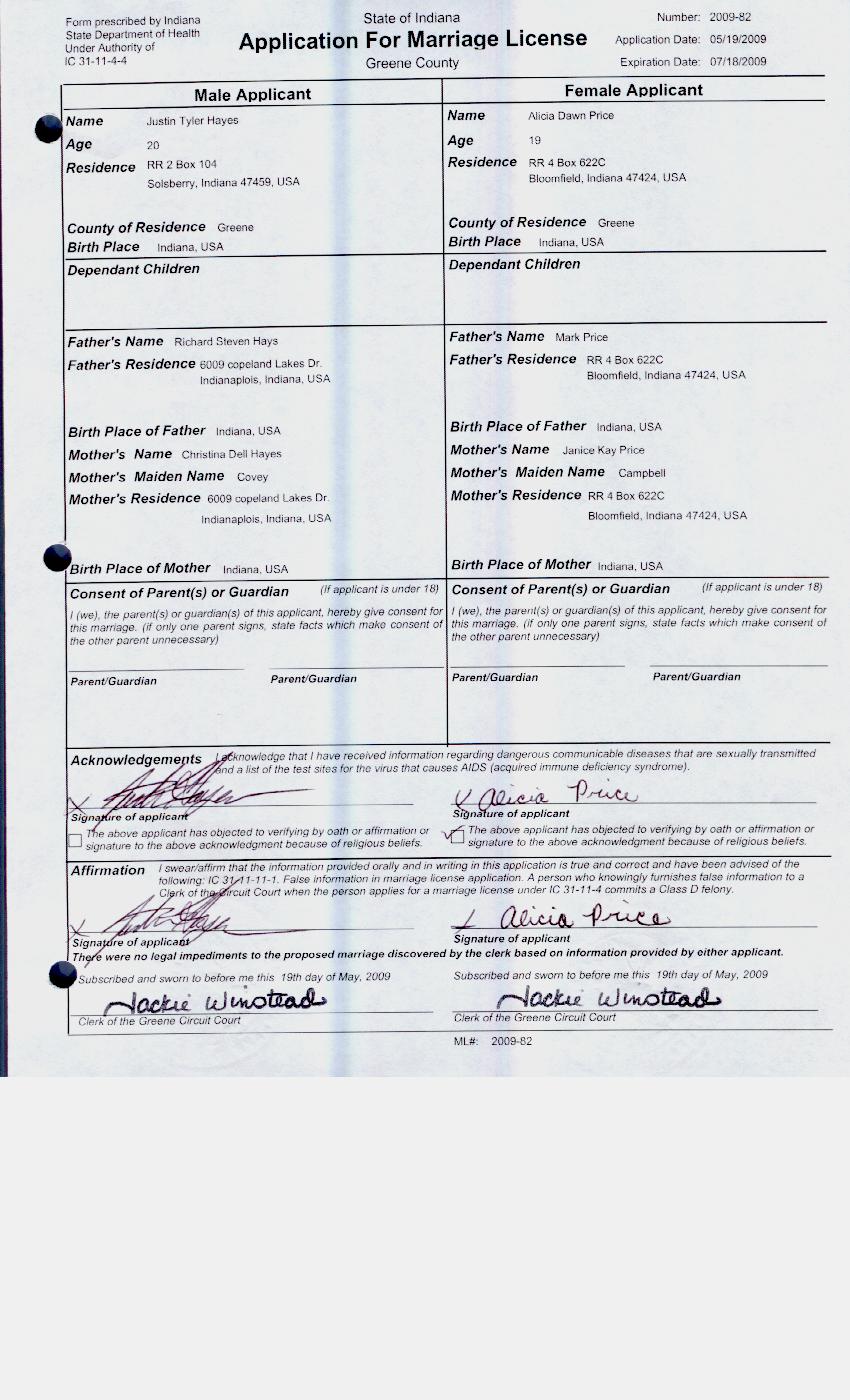 Form prescribed by Indiana
State Department of Health
Under Authority of
IC 31-11-4-4
State of Indiana
Application For Marriage License
Greene County
Number: 2009-82
Application Date: 05/19/2009
Expiration Date: 07/18/2009
Male Applicant
Name Justin Tyler Hayes
Age 20
Residence RR 2 Box 104
Solsberry, Indiana 47459, USA
County of Residence Greene
Birth Place Indiana, USA
Dependant Children
Father's Name Richard Steven Hays
Father's Residence 6009 copeland Lakes Dr.
Indianaplois, Indiana, USA
Birth Place of Father Indiana, USA
Mother's Name Christina Dell Hayes
Mother's Maiden Name Covey
Mother's Residence 6009 copeland Lakes Dr.
Indianaplois, Indiana, USA
Birth Place of Mother Indiana, USA
Consent of Parent(s) or Guardian (If applicant is under 18)
I (we), the parent(s) or guardian(s) of this applicant, hereby give consent for
this marriage. (if only one parent signs, state facts which make consent of
the other parent unnecessary)
Parent/Guardian Parent/Guardian
Female Applicant
Name Alicia Dawn Price
Age 19
Residence RR 4 Box 622C
Bloomfield, Indiana 47424, USA
County of Residence Greene
Birth Place Indiana, USA
Dependant Children
Father's Name Mark Price
Father's Residence RR 4 Box 622C
Bloomfield, Indiana 47424, USA
Birth Place of Father Indiana, USA
Mother's Name Janice Kay Price
Mother's Maiden Name Campbell
Mother's Residence RR 4 Box 622C
Bloomfield, Indiana 47424, USA
Birth Place of Mother Indiana, USA
Consent of Parent(s) or Guardian (If applicant is under 18)
I (we), the parent(s) or guardian(s) of this applicant, hereby give consent for
this marriage. (if only one parent signs, state facts which make consent of
the other parent unnecessary)
Parent/Guardian Parent/Guardian
Acknowledgements I acknowledge that I have received information regarding dangerous communicable diseases that are sexually transmitted
and a list of the test sites for the virus that causes AIDS (acquired immune deficiency syndrome).
X
Signature of applicant
The above applicant has objected to verifying by oath or affirmation or
signature to the above acknowledgment because of religious beliefs.
Alicia Price
Signature of applicant
The above applicant has objected to verifying by oath or affirmation or
signature to the above acknowledgment because of religious beliefs.
Affirmation I swear/affirm that the information provided orally and in writing in this application is true and correct and have been advised of the
following: IC 31-11-11-1. False information in marriage license application. A person who knowingly furnishes false information to a
Clerk of the Circuit Court when the person applies for a marriage license under IC 31-11-4 commits a Class D felony.
X
Signature of applicant
Alicia Price
Signature of applicant
There were no legal impediments to the proposed marriage discovered by the clerk based on information provided by either applicant.
Subscribed and sworn to before me this 19th day of May, 2009
Jackie Winstead
Clerk of the Greene Circuit Court
Subscribed and sworn to before me this 19th day of May, 2009
Jackie Winstead
Clerk of the Greene Circuit Court
ML#: 2009-82